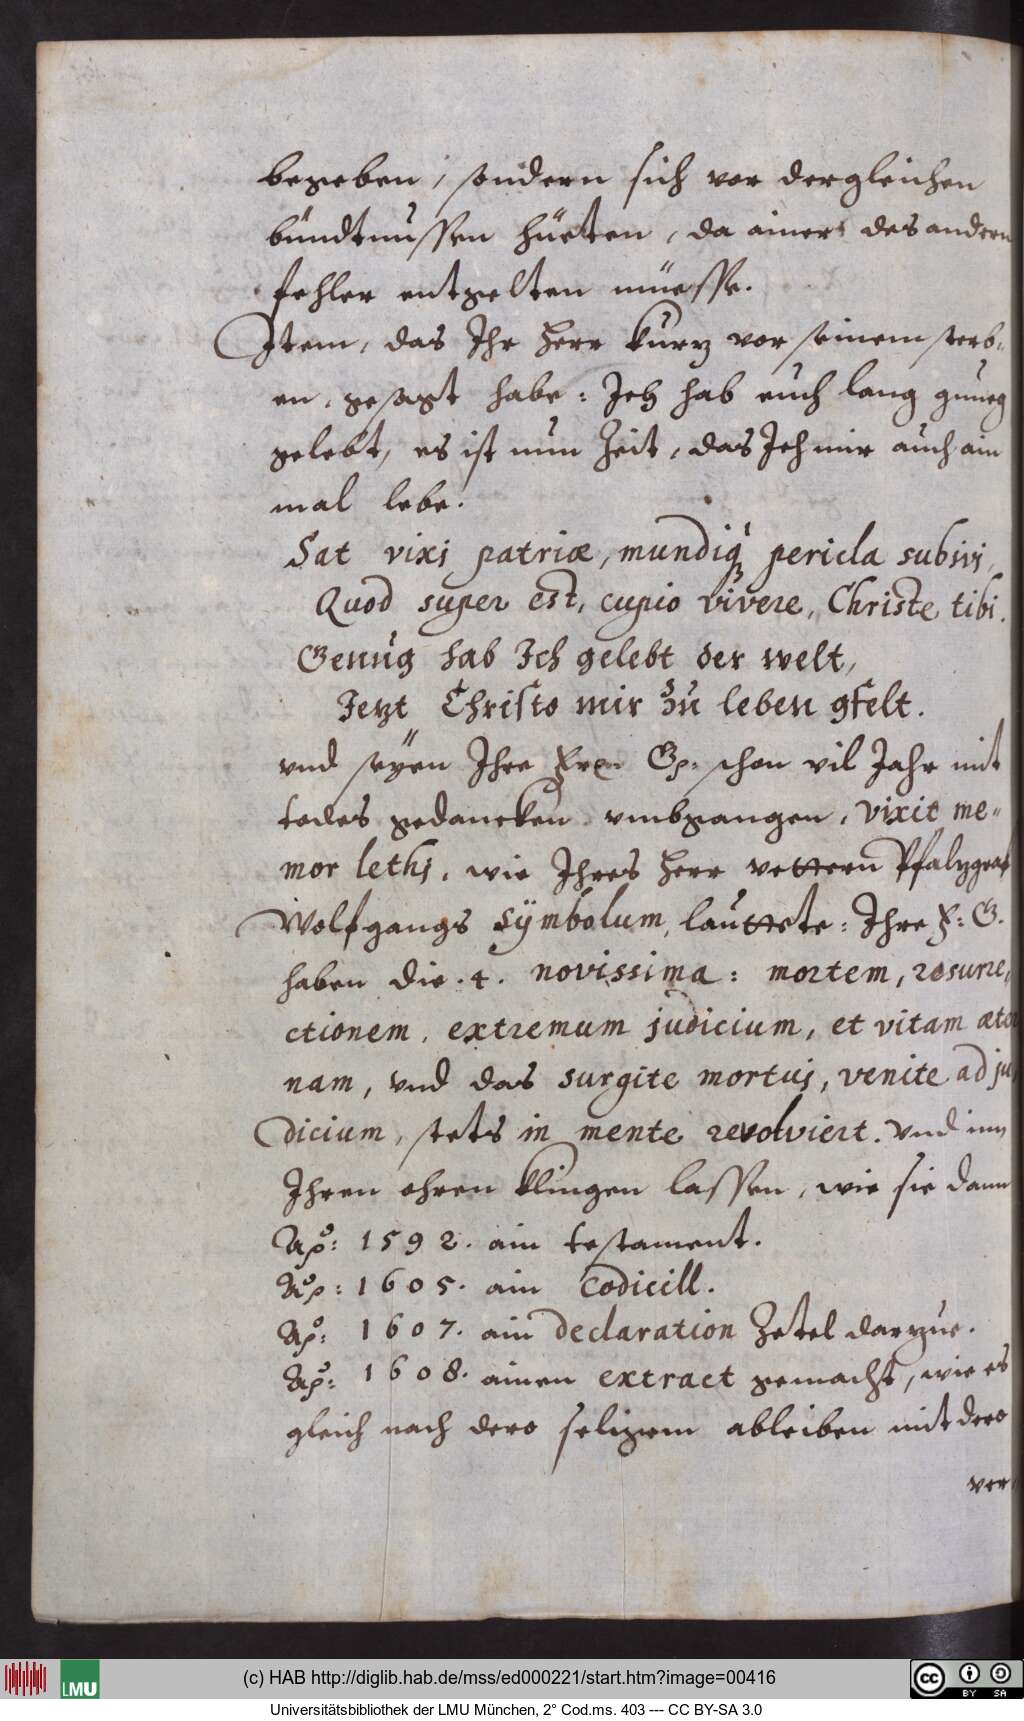 begeben, sondern sich vor dergleichen
bündtnussen hüeten, da ainer des andern
fehler entgelten müesse.
Item, das Ihr Herr kurz vor seinem sterb-
en, gesagt habe: Ich hab euch lang gnueg
gelebt, es ist nun Zeit, das Ich mir auch ain
mal lebe.
Sat vixi patriæ, mundiq́ʒ pericla subivi,
Quod super est, cupio vivere, Christe tibi.
Genůg hab Ich gelebt der welt,
Jetzt Christo mir zů leben gfelt.
vnd seÿen Ihre Gn: schon vil Jahr mit
todes gedancken vmbgangen, vixit me-
mor lethj, wie Ihres Herr vettern Pfalzgraf
Wolfgangs Sÿmbolum, lauttete: Ihre F: G.
haben die .4. novissima: mortem, resurre,
ctionem, extremum judicium, et vitam æter
nam, vnd das surgite mortuj, venite ad ju,
dicium, stets in mente revolviert. vnd inn
Ihren ohren klingen lassen, wie sie dann
Aō: 1592. ain testament.
Aō: 1605. ain Codicill.
Aō: 1607. ain declaration Zetel darzue.
Aō: 1608. ainen extract gemacht, wie es
gleich nach dero seligem ableiben mit dero
ver
(c) HAB http://diglib.hab.de/mss/ed000221/start.htm?image=00416
LMU
cc BY SA
Universitätsbibliothek der LMU München, 2° Cod.ms. 403 --- CC BY-SA 3.0